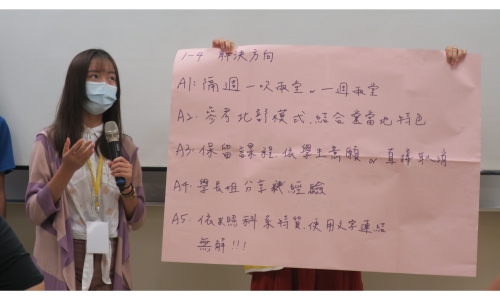 1-4 解決方向
A1: 隔週一次兩堂 or 一週兩堂
A2. 參考北部模式,結合當地特色
A3. 保留課程,依學生意願 or 直接取消
A4. 學長姐分享經驗
A5. 依照科系特質,使用文字連結
無解!!!